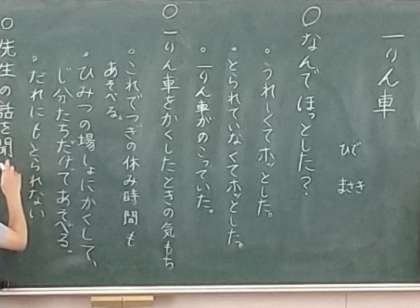 一りん車
ひで
まさき
○なんでほっとした？
・うれしくてホッとした。
・とられていなくてホッとした。
・一りん車がのこっていた。
○一りん車をかくしたときの気もち
・これでつぎの休み時間も
あそべる。
・ひみつの場しょにかくして、
じ分たちだけであそべる。
・だれにもとられない
○先生の話を聞